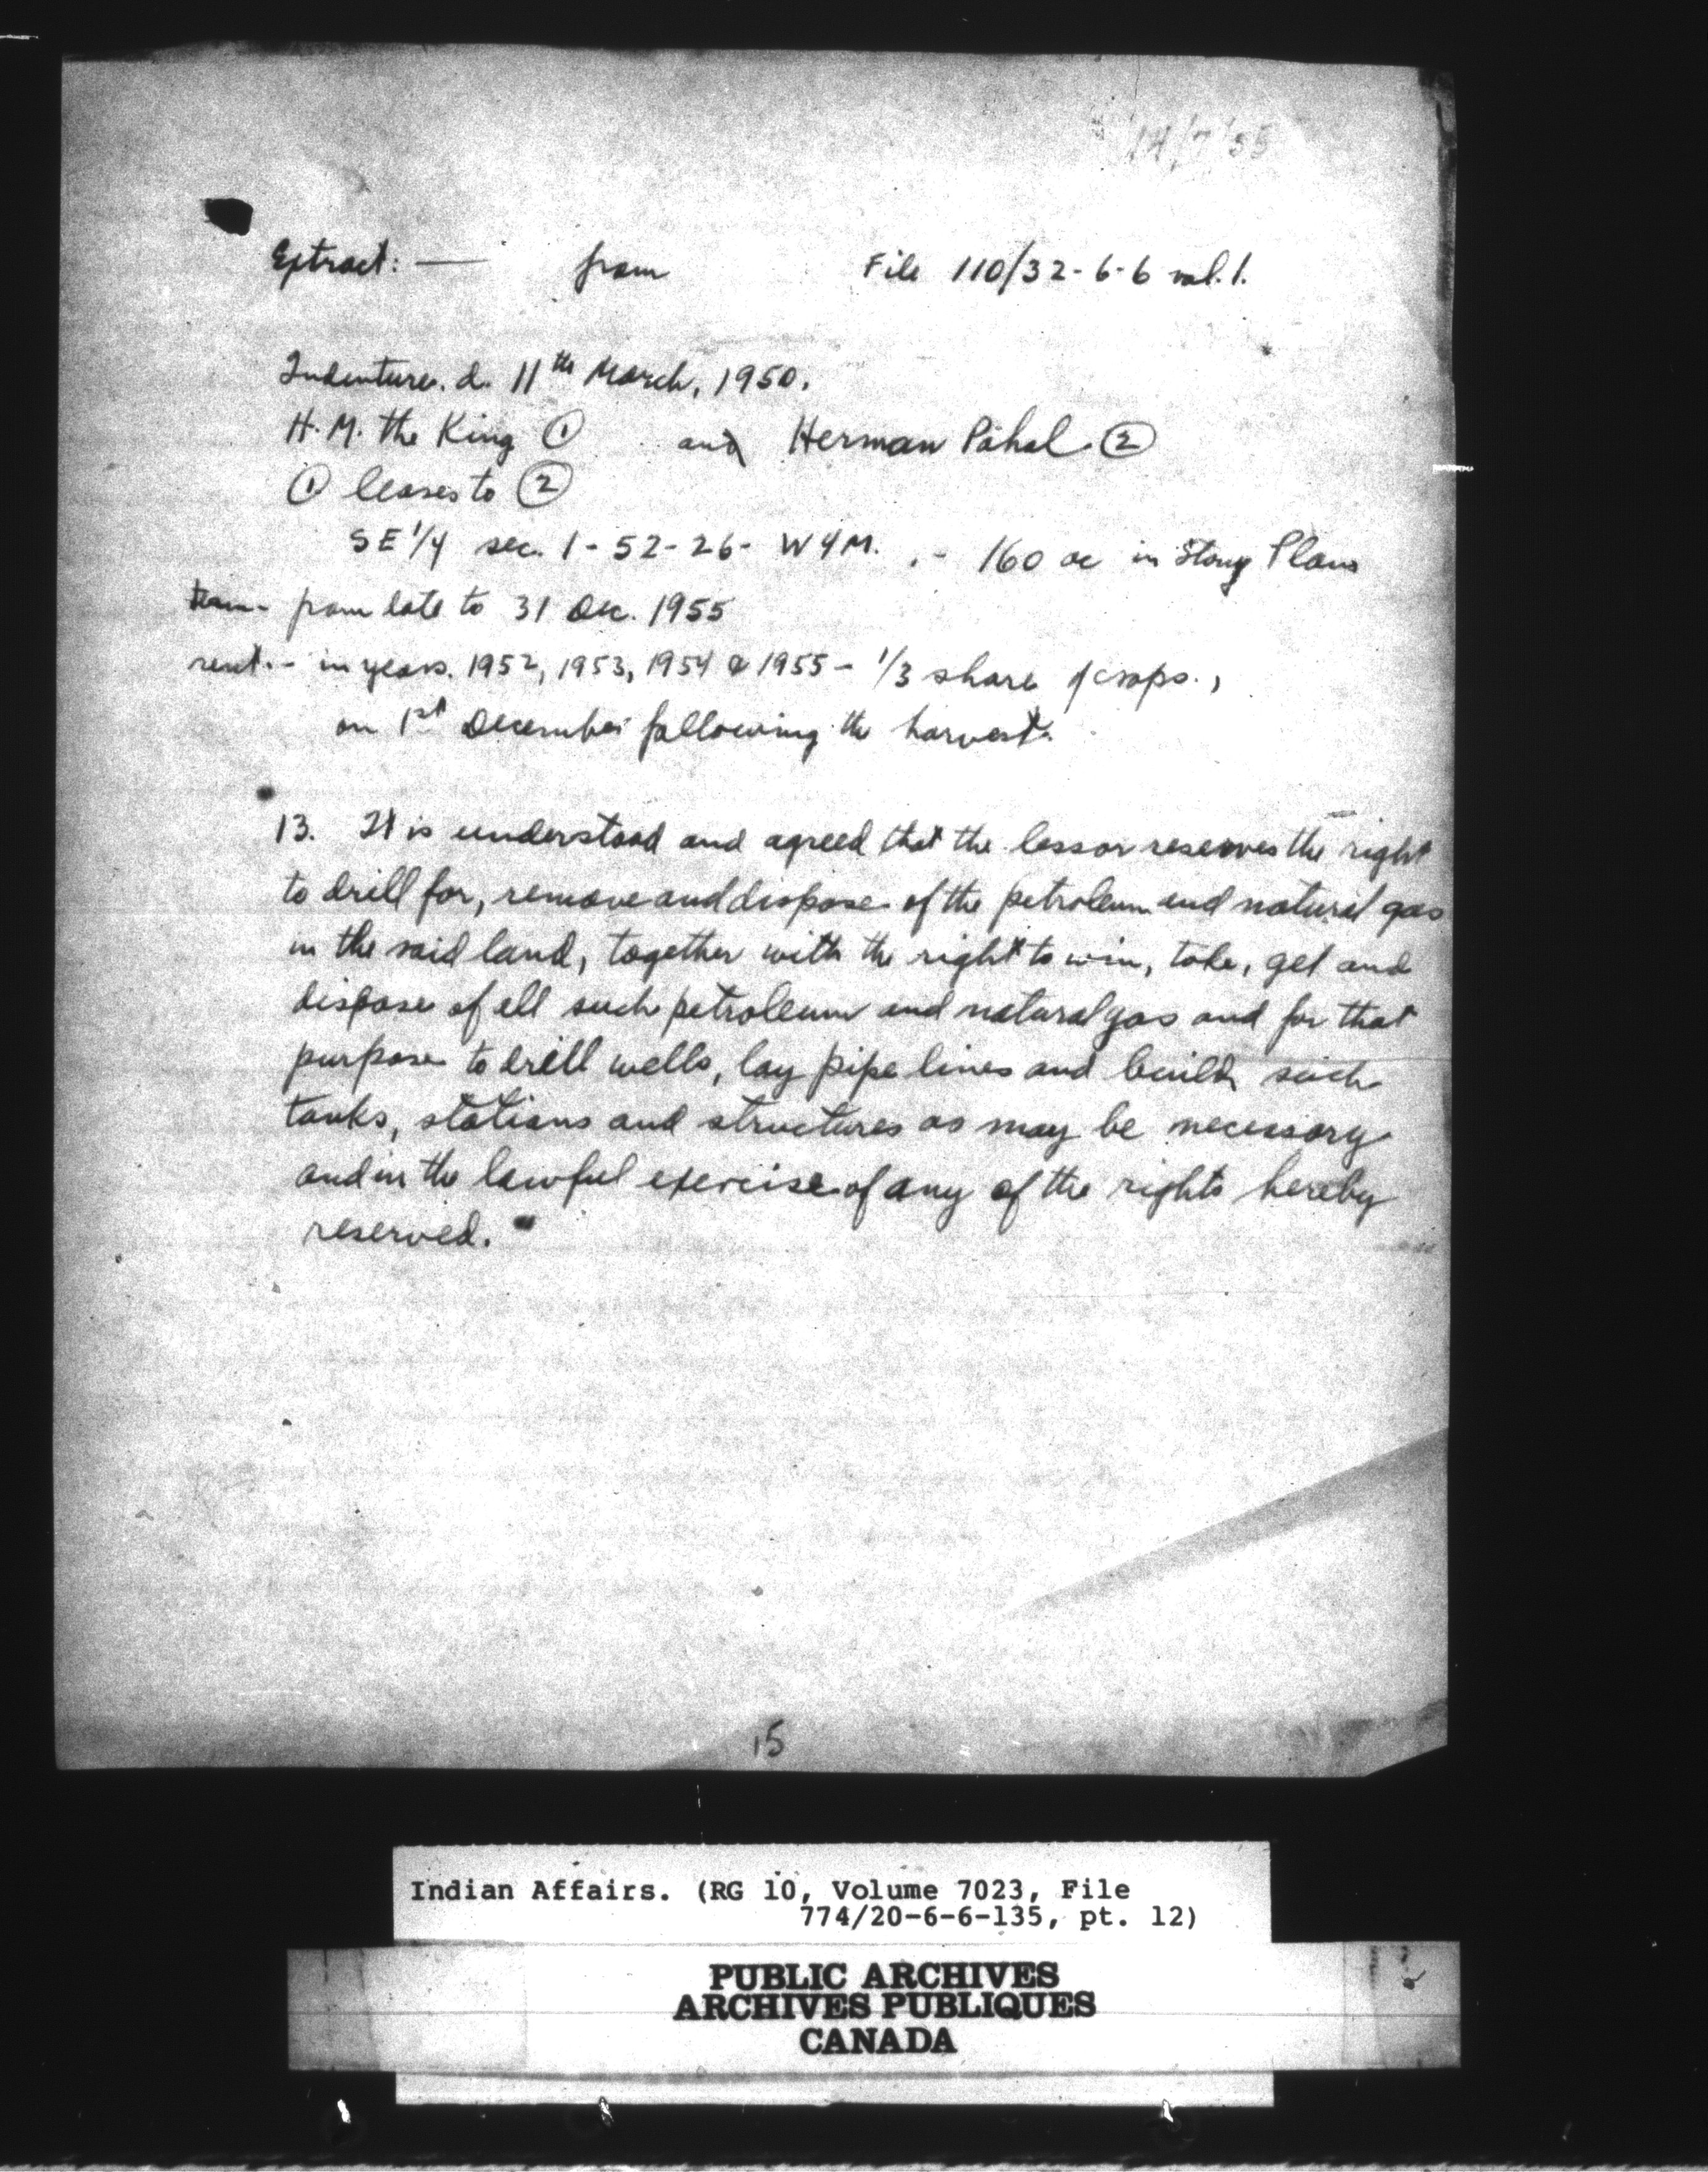 14/7/55
Extract: — from File 110/32-6-6 vol. 1.
Indenture. d. 11th March, 1950.
H.M. the King ① and Herman Pahal ②
① leases to ②
SE 1/4 sec. 1-52-26- W4M. .- 160 ac in Stony Plain
term- from date to 31 Dec. 1955
rent.- in years. 1952, 1953, 1954 & 1955 - 1/3 share of crops.,
on 1st December following the harvest.
"13. It is understood and agreed that the lessor reserves the right
to drill for, remove and dispose of the petroleum and natural gas
in the said land, together with the right to win, take, get and
dispose of all such petroleum and natural gas and for that
purpose to drill wells, lay pipe lines and build such
tanks, stations and structures as may be necessary
and in the lawful exercise of any of the rights hereby
reserved."
15
Indian Affairs. (RG 10, Volume 7023, File
774/20-6-6-135, pt. 12)
PUBLIC ARCHIVES
ARCHIVES PUBLIQUES
CANADA